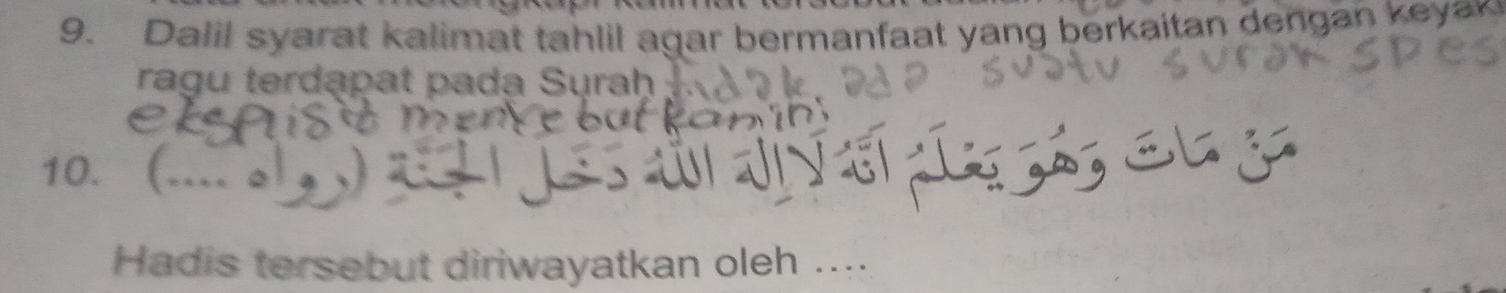 9. Dalil syarat kalimat tahlil agar bermanfaat yang berkaitan dengan
ragu terdapat pada Surah tidak ada suatu surah spes
eksplisit menyebutkan ini
10. مَنْ مَاتَ وَهُوَ يَعْلَمُ اَنَّهُ لَا اِلٰهَ اِلَّا اللّٰهُ دَخَلَ الْجَنَّةَ (رواه ....)
Hadis tersebut diriwayatkan oleh ....